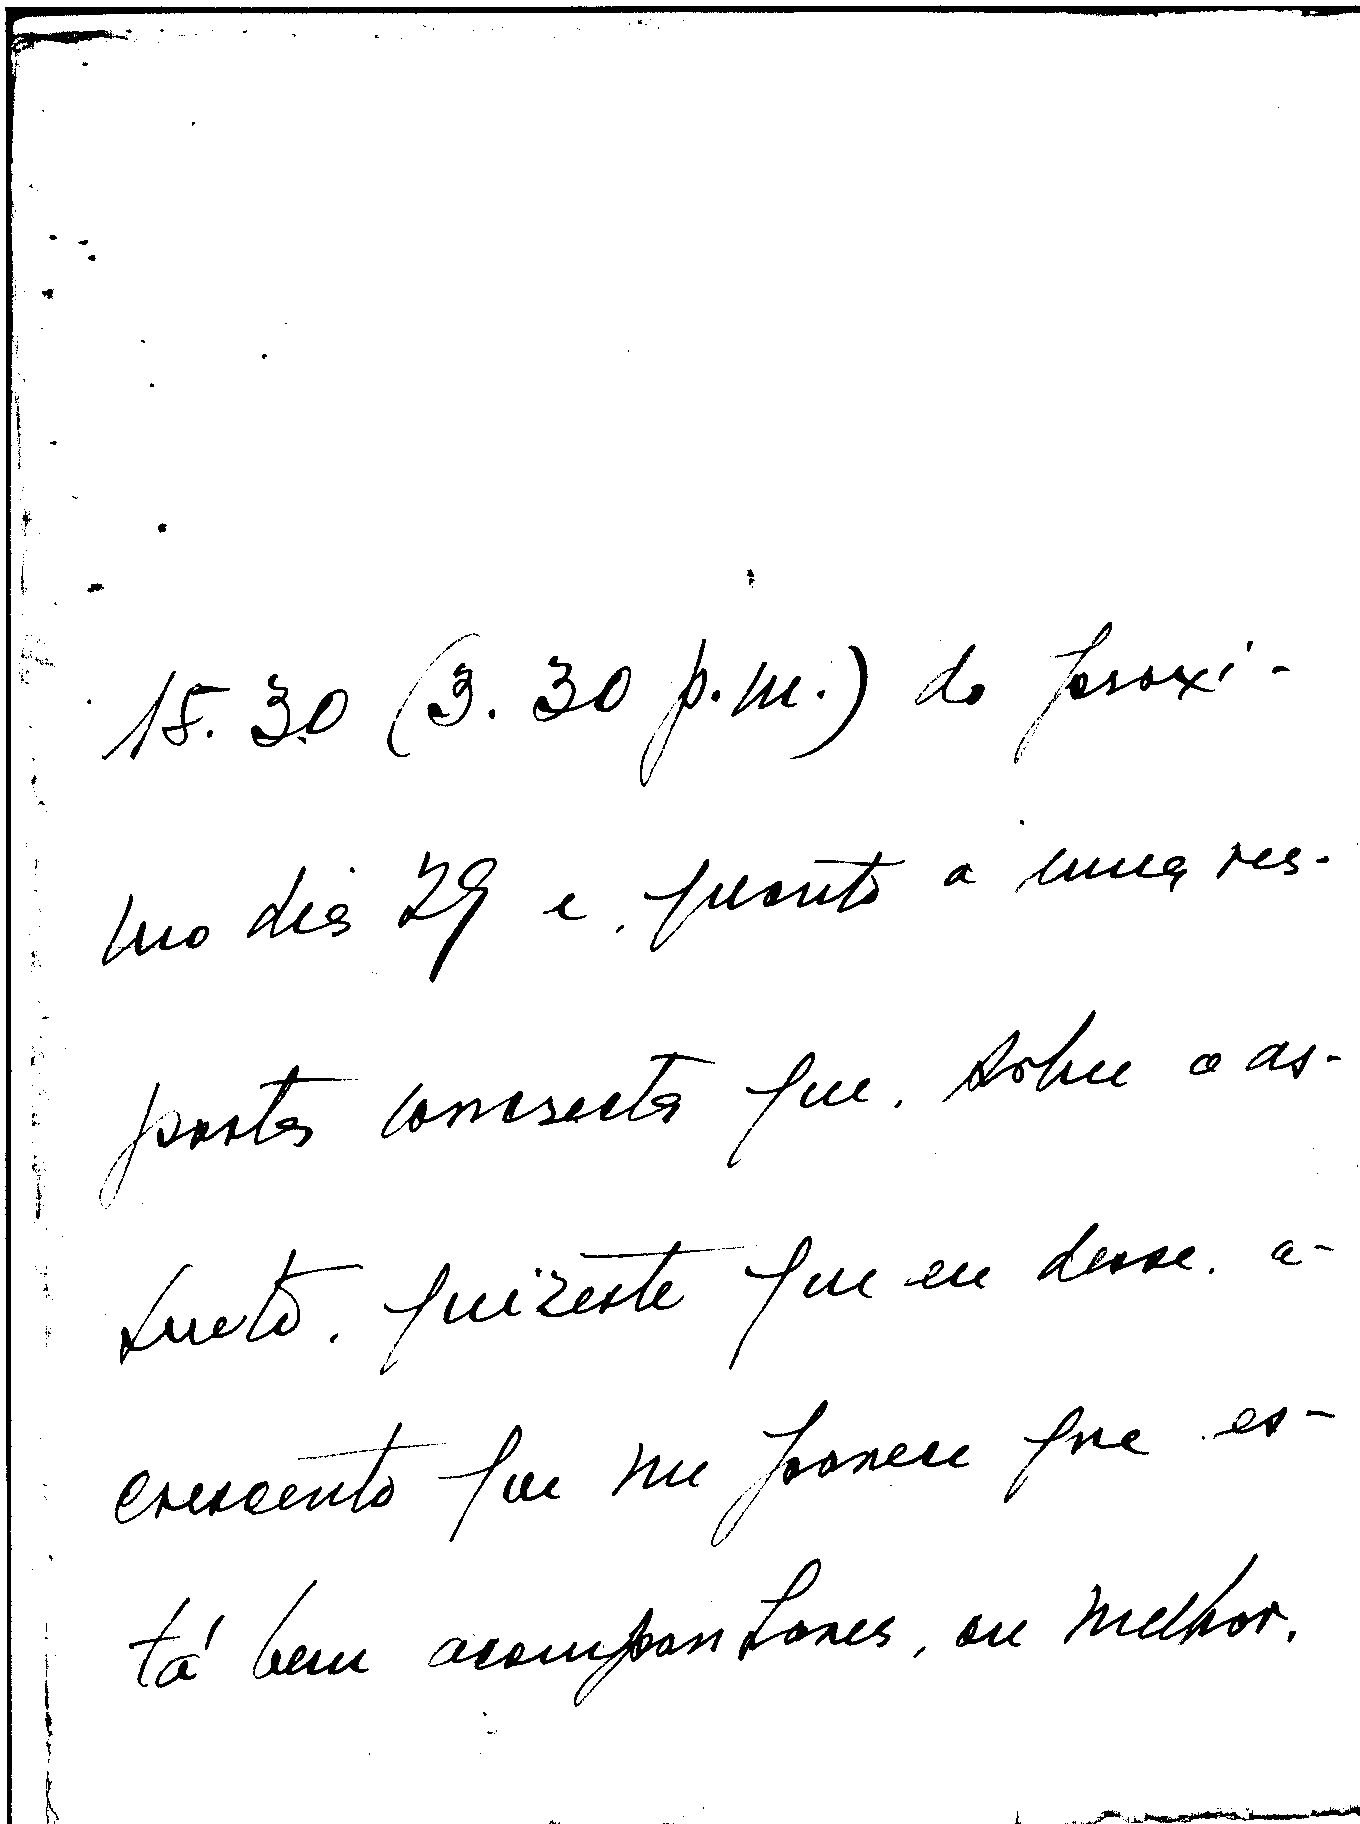 15.30 (3.30 p.m.) do proxi-
mo dia 29 e, quanto a uma res-
posta concreta que, sobre o as-
sunto, quizeste que eu desse, a-
crescento que me parece que es-
tá bem acompanhares, ou melhor,